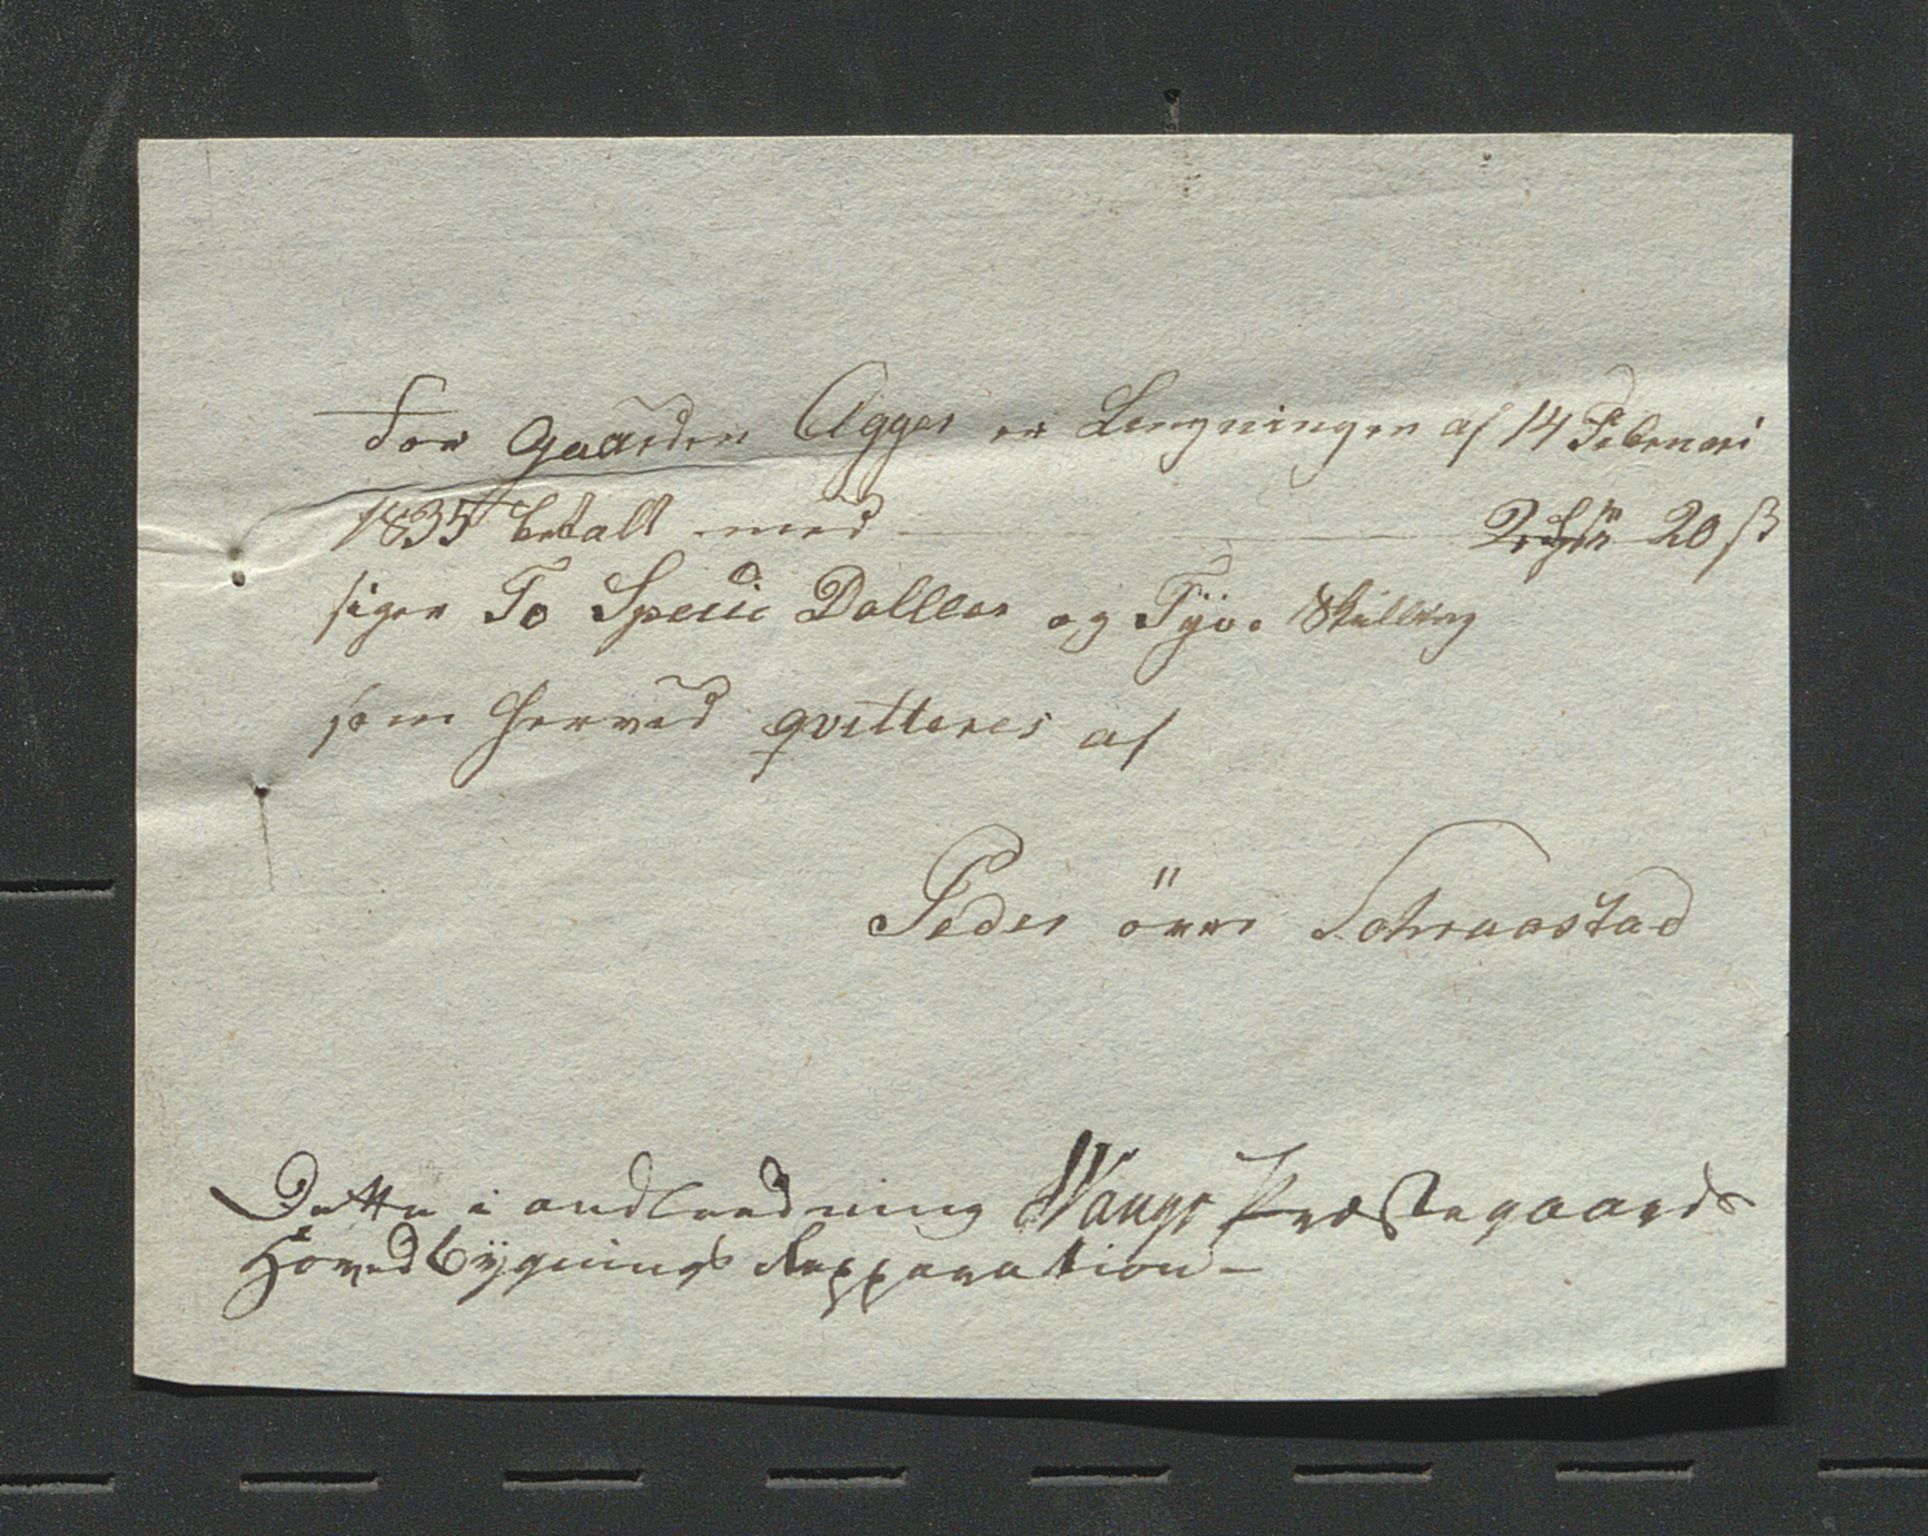 For Gaarden Agger er Lingningen af 14 Februari
1835 betalt med 2 20 ß
siger To Specie Dalller og Tyve Skilling
som herved qvitteres af
Peder övre Schraastad
Dette i andleedning Wangs Præstegaards
Hovedbÿgnings Repparation -